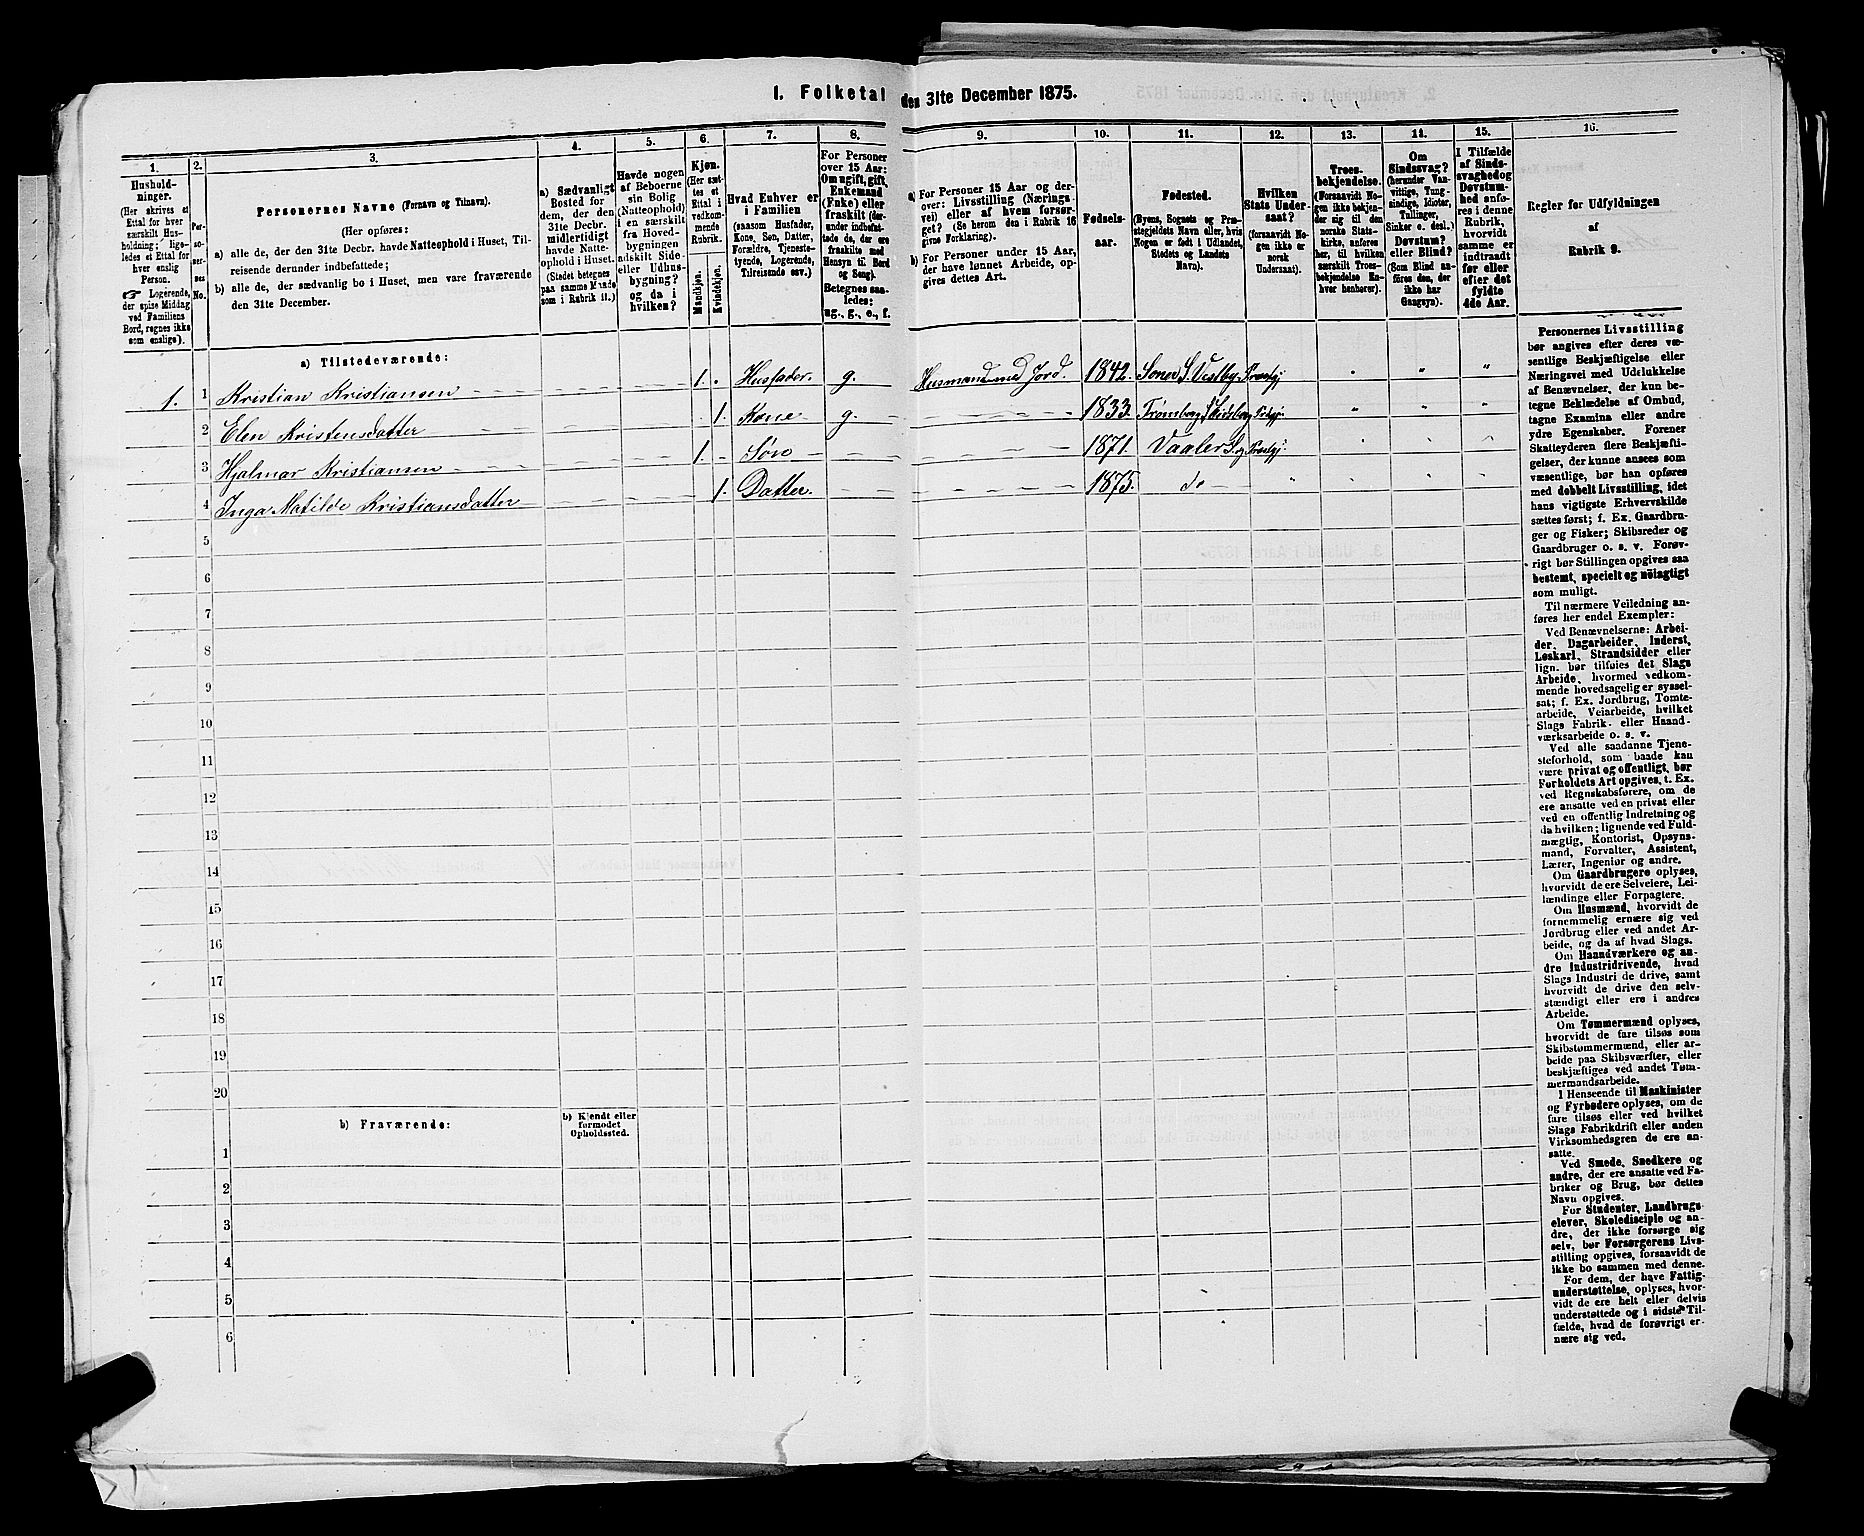 1. Folketal den 31te December 1875.
1.
2.
3.
4.
5.
6.
7.
8.
9.
10.
11.
12.
13.
14.
15.
16.
Hushold-
ninger.
(Her skrives et
Ettal for hver
særskilt Hus-
holdning; lige-
ledes et Ettal for
hver enslig
Person.
☞ Logerende,
der spise Middag
ved Familiens
Bord, regnes ikke
som enslige).
Per-
so-
ner-
nes
No.
Personernes Navne (Fornavn og Tilnavn).
(Her opføres:
a) alle de, der den 31te Decbr. havde Natteophold i Huset, Til-
reisende derunder indbefattede;
b) alle de, der sædvanlig bo i Huset, men vare fraværende
den 31te December.
a) Sædvanligt
Bosted for
dem, der den
31te Decbr.
midlertidigt
havde Natte-
ophold i Huset.
(Stedet betegnes
paa samme Maade
som i Rubrik 11.)
Havde nogen
af Beboerne
sin Bolig
(Natteophold)
i en særskilt
fra Hoved-
bygningen
adskilt Side-
eller Udhus-
bygning?
og da i
hvilken?
Kjøn.
(Her sæt-
tes et
Ettal i
vedkom-
mende
Rubrik.
Mandkjøn.
Kvindekjøn.
Hvad Enhver er
i Familien
(saasom Husfader,
Kone, Søn, Datter,
Forældre, Tjeneste-
tyende, Logerende,
Tilreisende osv.)
For Personer
over 15 Aar:
Om ugift, gift,
Enkemand
(Enke) eller
fraskilt (der-
under indbefat-
tede de, der ere
fraskilte med
Hensyn til Bord
og Seng).
Betegnes saa-
ledes:
ug., g., e., f.
a) For Personer 15 Aar og der-
over: Livsstilling (Nærings-
vei) eller af hvem forsør-
get? (Se herom den i Rubrik 16
givne Forklaring).
b) For Personer under 15 Aar,
der have lønnet Arbeide, op-
gives dettes Art.
Fødsels-
aar.
Fødested.
(Byens, Sognets og Præ-
stegjeldets Navn eller, hvis
Nogen er født i Udlandet,
Stedets og Landets
Navn).
Hvilken
Stats Under-
saat?
(forsaavidt No-
gen ikke er
norsk
Undersaat).
Troes-
bekjendelse.
(Forsaavidt No-
gen ikke bekjen-
der sig til den
norske Stats-
kirke, anføres
her, til hvilken
særskilt Troes-
bekjendelse En-
hver henhører).
Om
Sindssvag?
(herunder Van-
vittige, Tung-
sindige, Idioter,
Tullinger,
Sinker o. desl.)
Døvstum?
eller Blind?
(Som Blind an-
føres den, der
ikke har
Gangsyn).
I Tilfælde
af Sinds-
svaghed og
Døvstum-
hed anfø-
res i denne
Rubrik,
hvorvidt
samme er
indtraadt
før eller
efter det
fyldte
4de Aar.
Regler for Udfyldningen
af
Rubrik 9.
a) Tilstedeværende:
1. 1 Kristian Kristiansen 1. Husfader. g. Husmand med Jord. 1842. Soner S. Vestby Prestgj " " "
2 Elen Kristensdatter 1. Kone g. 1833. " " "
3 Hjalmar Kristiansen 1. Søn 1871. Vaaler S. og Prestgj.
4 Inga Matilde Kristiansdatter 1. Datter. 1875. do " " " "
5
6
7
8
9
10
11
12
13
14
15
16
17
18
19
20
b) Fraværende:
b) Kjendt eller
formodet
Opholdssted.
1
2
3
4
5
6
Personernes Livsstilling
bør angives efter deres væ-
sentlige Beskjæftigelse eller
Næringsvei med Udelukkelse
af Benævnelser, der kun be-
tegne Beklædelse af Ombud,
tagne Examina eller andre
ydre Egenskaber. Forener
Skatteyderen flere Beskjæfti-
gelser, der kunne ansees som
væsentlige, bør han opføres
med dobbelt Livsstilling, idet
hans vigtigste Erhvervskilde
sættes først; f. Ex. Gaardbru-
ger og Fisker; Skibsreder og
Gaardbruger o. s. v. Forøv-
rigt bør Stillingen opgives saa
bestemt, specielt og nöiagtigt
som muligt.
Til nærmere Veiledning an-
føres her endel Exempler:
Ved Benævnelserne: Arbei-
der, Dagarbeider, Inderst,
Løskarl, Strandsidder eller
lign. bør tilføies det Slags
Arbeide, hvormed vedkom-
mende hovedsagelig er syssel-
sat; f. Ex. Jordbrug, Tomte-
arbeide, Veiarbeide, hvilket
Slags Fabrik- eller Haand-
værksarbeide o. s. v.
Ved alle saadanne Tjene-
steforhold, som baade kan
være privat og offentligt, bør
Forholdets Art opgives, t. Ex.
ved Regnskabsførere, om de
ere ansatte ved en privat eller
ved en offentlig Indretning og
da hvilken; lignende ved Fuld-
mægtig, Kontorist, Opsyns-
mand, Forvalter, Assistent,
Lærer, Ingeniør og andre.
Om Gaardbrugere oplyses,
hvorvidt de ere Selveiere, Lei-
lændinge eller Forpagtere.
Om Husmænd, hvorvidt de
fornemmelig ernære sig ved
Jordbrug eller ved andet Ar-
beide, og da af hvad Slags.
Om Haandværkere og an-
dre Industridrivende, hvad
Slags Industri de drive, samt
hvorvidt de drive den selv-
stændigt eller ere i andres
Arbeide.
Om Tømmermænd oplyses,
hvorvidt de fare tilsøs som
Skibstømmermænd, eller ar-
beide paa Skibsværfter, eller
beskjæftiges ved andet Tøm-
mermandsarbeide.
I Henseende til Maskinister
og Fyrbødere oplyses, om de
fare tilsøs eller ved hvilket
Slags Fabrikdrift eller anden
Virksomhedsgren de ere an-
satte.
Ved Smede, Snedkere og
andre, der ere ansatte ved Fa-
briker og Brug, bør dettes
Navn opgives.
For Studenter, Landbrugs-
elever, Skoledisciple og an-
dre, der ikke forsørge sig
selv, bør Forsørgerens Livs-
stilling opgives, forsaavidt de
ikke bo sammen med denne.
For dem, der have Fattig-
understøttelse, oplyses, hvor-
vidt de ere helt eller delvis
understøttede og i sidste Til-
fælde, hvad de forøvrigt er-
nære sig ved.